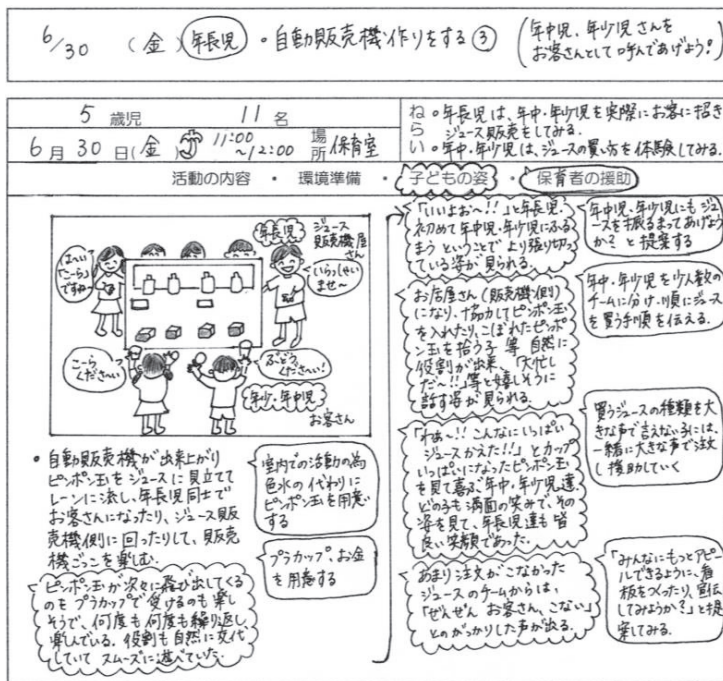 6/30 (金) 年長児 ・自動販売機作りをする③
(年中児、年少児さんを
お客さんとして呼んであげよう!)
5 歳児 11 名
6 月 30 日(金) 11:00
~12:00 場所 保育室
ねらい
○年長児は、年中・年少児を実際にお客に招き
ジュース販売をしてみる。
○年中・年少児は、ジュースの買い方を体験してみる。
活動の内容 ・ 環境準備 ・ 子どもの姿 ・ 保育者の援助
年長児
ジュース
販売機屋
さん
はーい
"こーら"
ですね~
いらっしゃい
ませ~
こーら
くださーい
ぶどう
くださーい!
年少・年中児
お客さん
• 自動販売機が出来上がり
ピンポン玉をジュースに見立てて
レーンに流し、年長児同士で
お客さんになったり、ジュース販
売機側に回ったりして、販売
機ごっこを楽しむ。
室内での活動の為
色水の代わりに
ピンポン玉を用意
する
プラカップ、お金
を用意する
ピンポン玉が次々に飛び出してくる
のをプラカップで受けるのも楽し
そうで、何度も何度も繰り返し
楽しんでいる。役割も自然に交代
していてスムーズに遊べていた。
「いいよぉ~!!」と年長児。
初めて年中児・年少児にふる
まうということでより張り切っ
ている姿が見られる。
お店屋さん(販売機側)
になり、協力してピンポン玉
を入れたり、こぼれたピンポ
ン玉を拾う子等自然に
役割が出来、「大忙し
だ~!!」等と嬉しそうに
話す姿が見られる。
「わぁ~!! こんなにいっぱい
ジュースかえた!!」とカップ
いっぱいになったピンポン玉
を見て喜ぶ年中・年少児達。
どの子も満面の笑みで、その
姿を見て、年長児達も皆
良い笑顔であった。
あまり注文がこなかった
ジュースのチームからは、
「ぜんぜんお客さん、こない」
とのがっかりした声が出る。
年中児、年少児にもジュ
ースを振るまってあげよう
か?と提案する
年中・年少児を少人数の
チームに分け、順にジュース
を買う手順を伝える。
買うジュースの種類を大
きな声で言えない子には、
一緒に大きな声で注文
し援助していく
「みんなにもっとアピー
ルできるように、看
板をつくったり、宣伝
してみようか?」と提
案してみる。